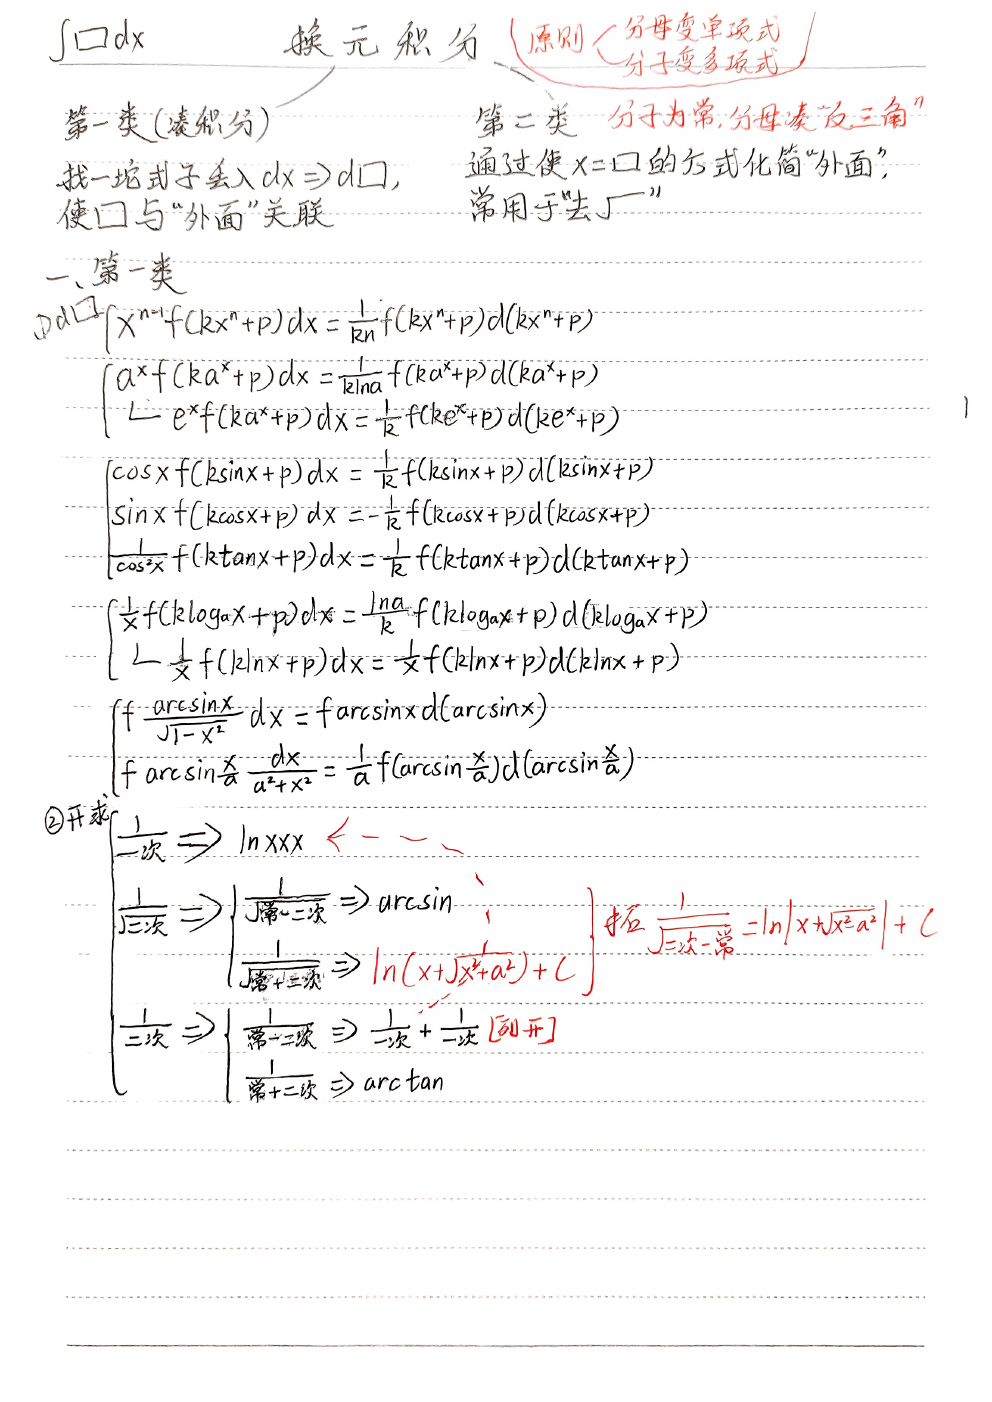 ∫□dx 换元积分 (原则< 分母变单项式
分子变多项式)
第一类(凑积分)
找一坨式子丢入dx⇒d□,
使□与“外面”关联
第二类 分子为常,分母凑“反三角”
通过使x=□的方式化简“外面”,
常用于“去√”
一、第一类
①d□ {x^{n-1}f(kx^n+p)dx = \frac{1}{kn}f(kx^n+p)d(kx^n+p)
{a^x f(ka^x+p)dx = \frac{1}{klna}f(ka^x+p)d(ka^x+p)
∟ e^x f(ka^x+p)dx = \frac{1}{k}f(ke^x+p)d(ke^x+p)
{cosxf(ksinx+p)dx = \frac{1}{k}f(ksinx+p)d(ksinx+p)
sinxf(kcosx+p)dx = -\frac{1}{k}f(kcosx+p)d(kcosx+p)
\frac{1}{cos²x}f(ktanx+p)dx = \frac{1}{k}f(ktanx+p)d(ktanx+p)
{\frac{1}{x}f(klogₐx+p)dx = \frac{lna}{k}f(klogₐx+p)d(klogₐx+p)
∟ \frac{1}{x}f(klnx+p)dx = \frac{1}{x}f(klnx+p)d(klnx+p)
{f \frac{arcsinx}{\sqrt{1-x²}}dx = farcsinxd(arcsinx)
f arcsin\frac{x}{a} \frac{dx}{a²+x²} = \frac{1}{a}f(arcsin\frac{x}{a})d(arcsin\frac{x}{a})
②开求 {\frac{1}{一次} ⇒ lnxxx ←---
\frac{1}{\sqrt{二次}} ⇒ {\frac{1}{\sqrt{常-二次}} ⇒ arcsin
\frac{1}{\sqrt{常+二次}} ⇒ ln(x+\sqrt{x²+a²})+C
] 括 \frac{1}{\sqrt{二次-常}} = ln|x+\sqrt{x²-a²}|+C
\frac{1}{二次} ⇒ {\frac{1}{常-二次} ⇒ \frac{1}{一次}+\frac{1}{一次} [列开]
\frac{1}{常+二次} ⇒ arctan